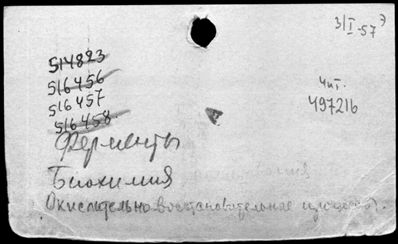 3/I-57 э
514823
516456
516457
516458
Чит.
497216
Ферменты
Биохимия
Окислительно-восстановительные процессы.